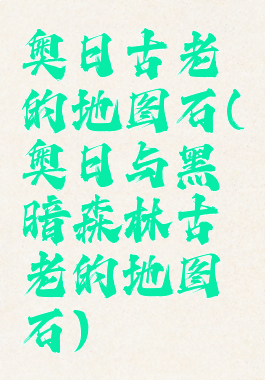 奥日古老
的地图石(
奥日与黑
暗森林古
老的地图
石)